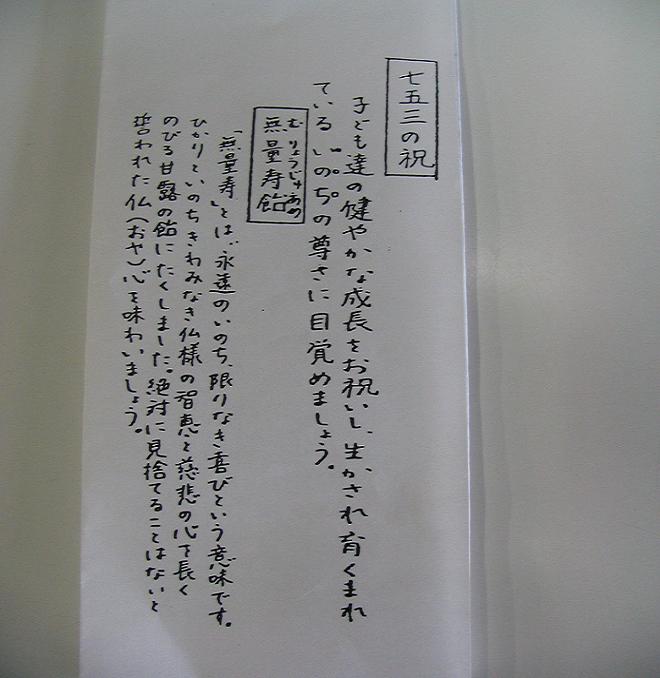 七五三の祝
子ども達の健やかな成長をお祝いし、生かされ育くまれ
ているいのちの尊さに目覚めましょう。
むりょうじゅあめ
無量寿飴
「無量寿」とは、永遠のいのち、限りなき喜びという意味です。
ひかりといのちきわみなき仏様の智恵と慈悲の心を長く
のびる甘露の飴にたくしました。絶対に見捨てることはないと
誓われた仏(おや)心を味わいましょう。